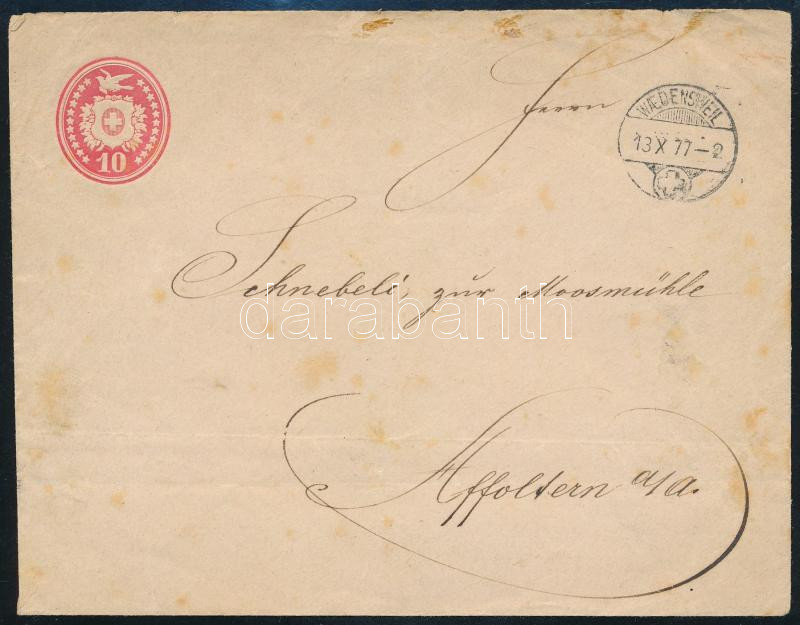 Herrn
WÆDENSWEIL
13 X 77 – 2
10
Schnebeli, zur Moosmühle
darabanth
Affoltern a/A.